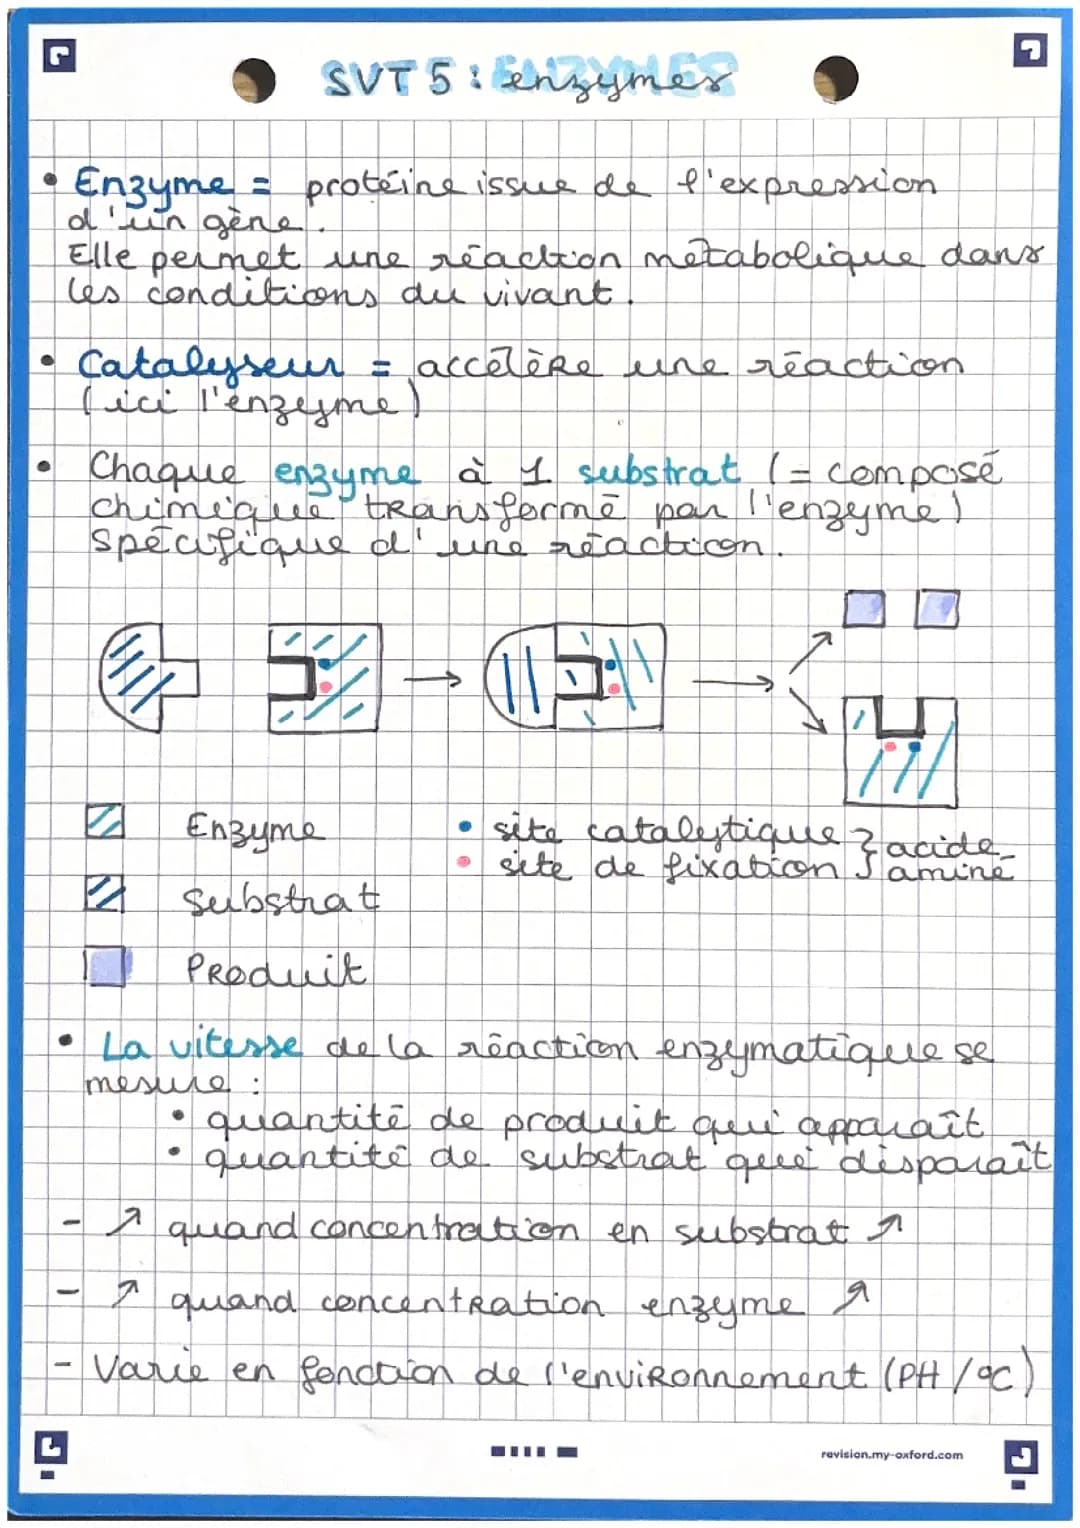 SVT 5 : enzymes
• Enzyme = protéine issue de l'expression
d'un gène.
Elle permet une réaction métabolique dans
les conditions du vivant.
• Catalyseur = accélère une réaction
(ici l'enzyme)
• Chaque enzyme à 1 substrat (= composé
chimique transformé par l'enzyme)
spécifique d'une réaction.
Enzyme
• site catalytique } acide
• site de fixation } aminé
Substrat
Produit
• La vitesse de la réaction enzymatique se
mesure :
• quantité de produit qui apparaît
• quantité de substrat qui disparaît
- ↗ quand concentration en substrat ↗
- ↗ quand concentration enzyme ↗
- Varie en fonction de l'environnement (PH / °C)
revision.my-oxford.com